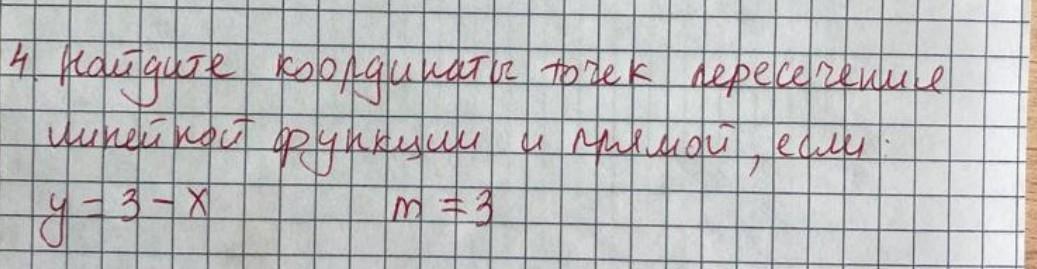 4. Найдите координаты точек пересечение
линейной функции и прямой, если:
y = 3 - x m = 3